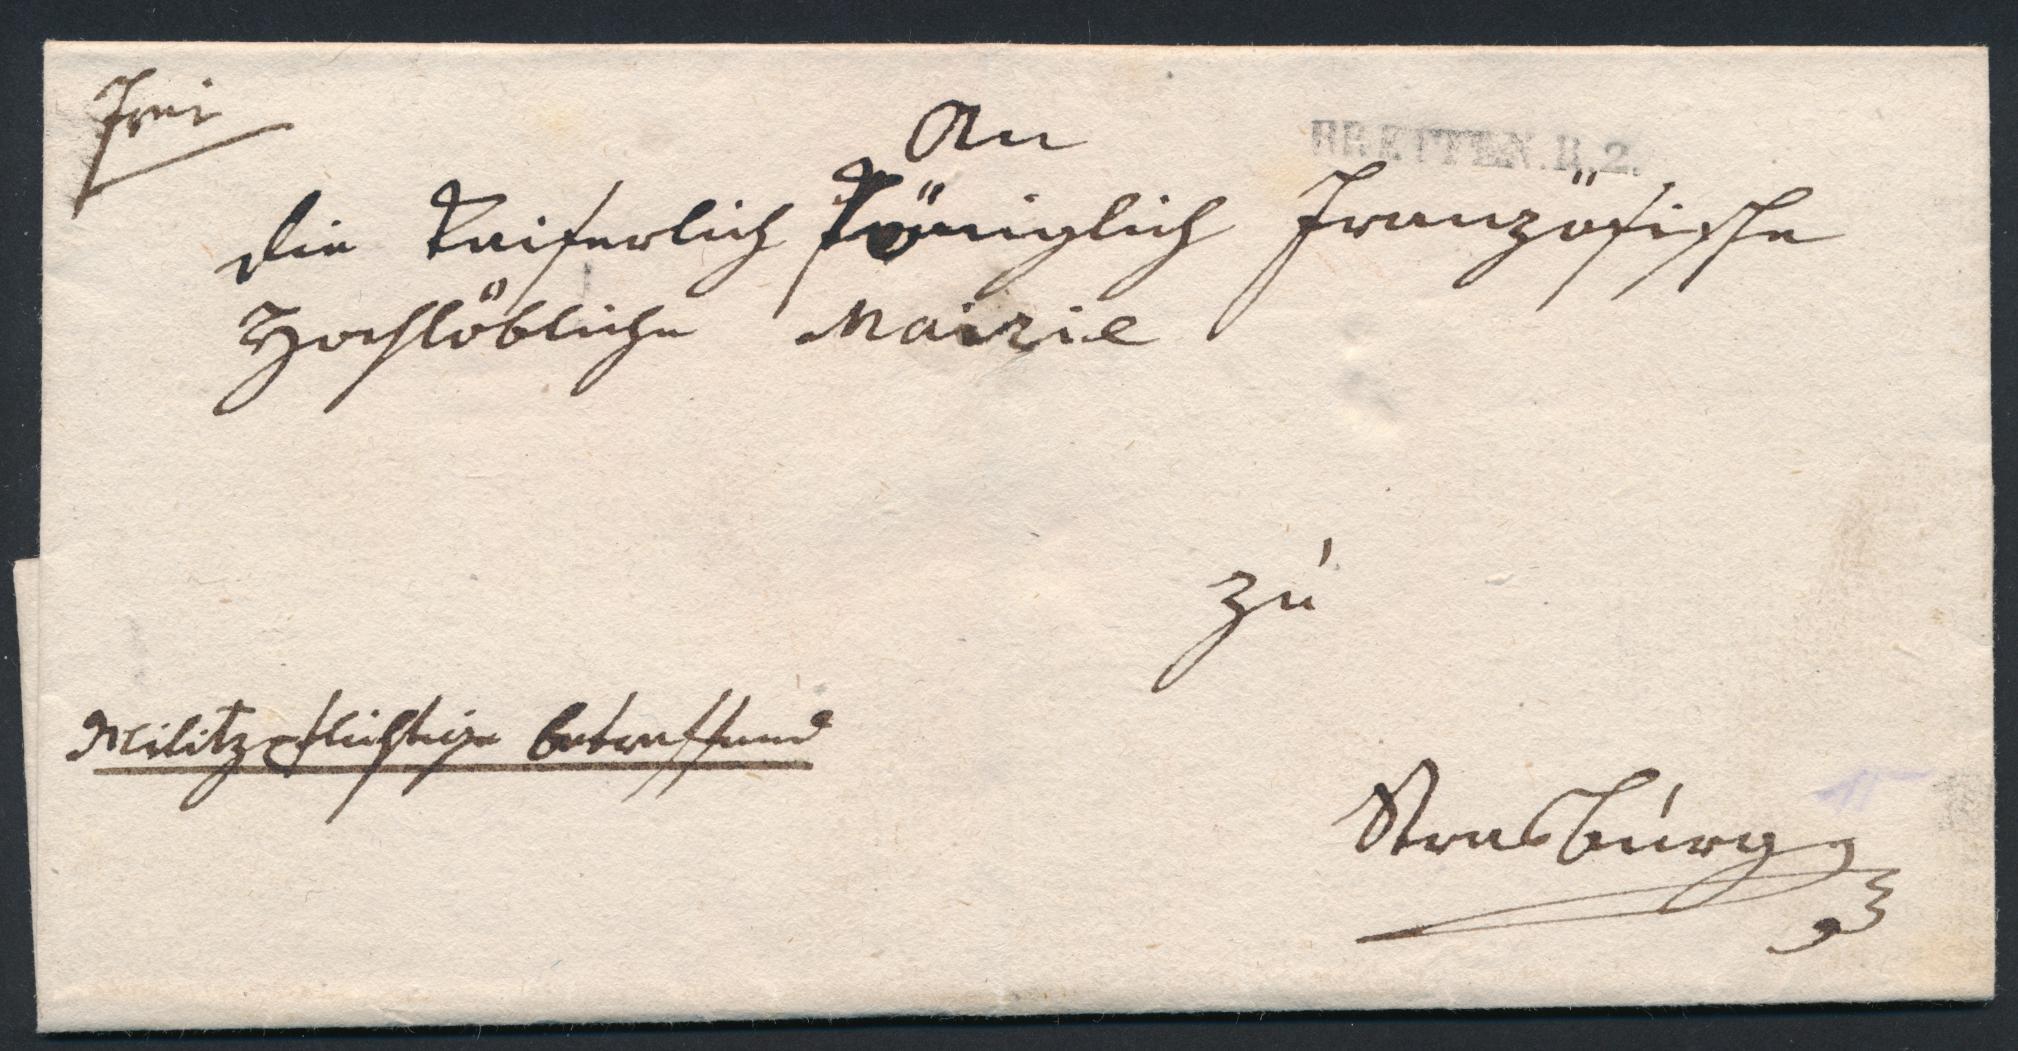 frei
BRETTEN.R.2.
An
die Kaiserlich Königlich Französische
Hochlöbliche Mairie
zu
Militzpflichtige betreffend
Strasburg